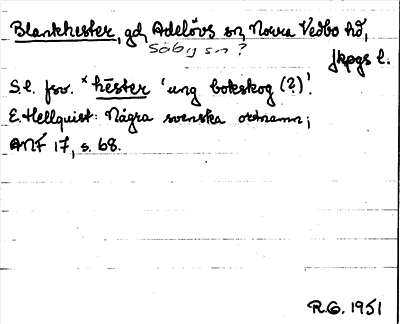 Blankhester, gd, Adelövs sn, Norra Vedbo hd,
Säby sn?
Jkpgs l.
Sl. fsv. *hēster 'ung bokskog (?)'.
E. Hellquist: Några svenska ortnamn;
ANF 17, s. 68.
R.G. 1951